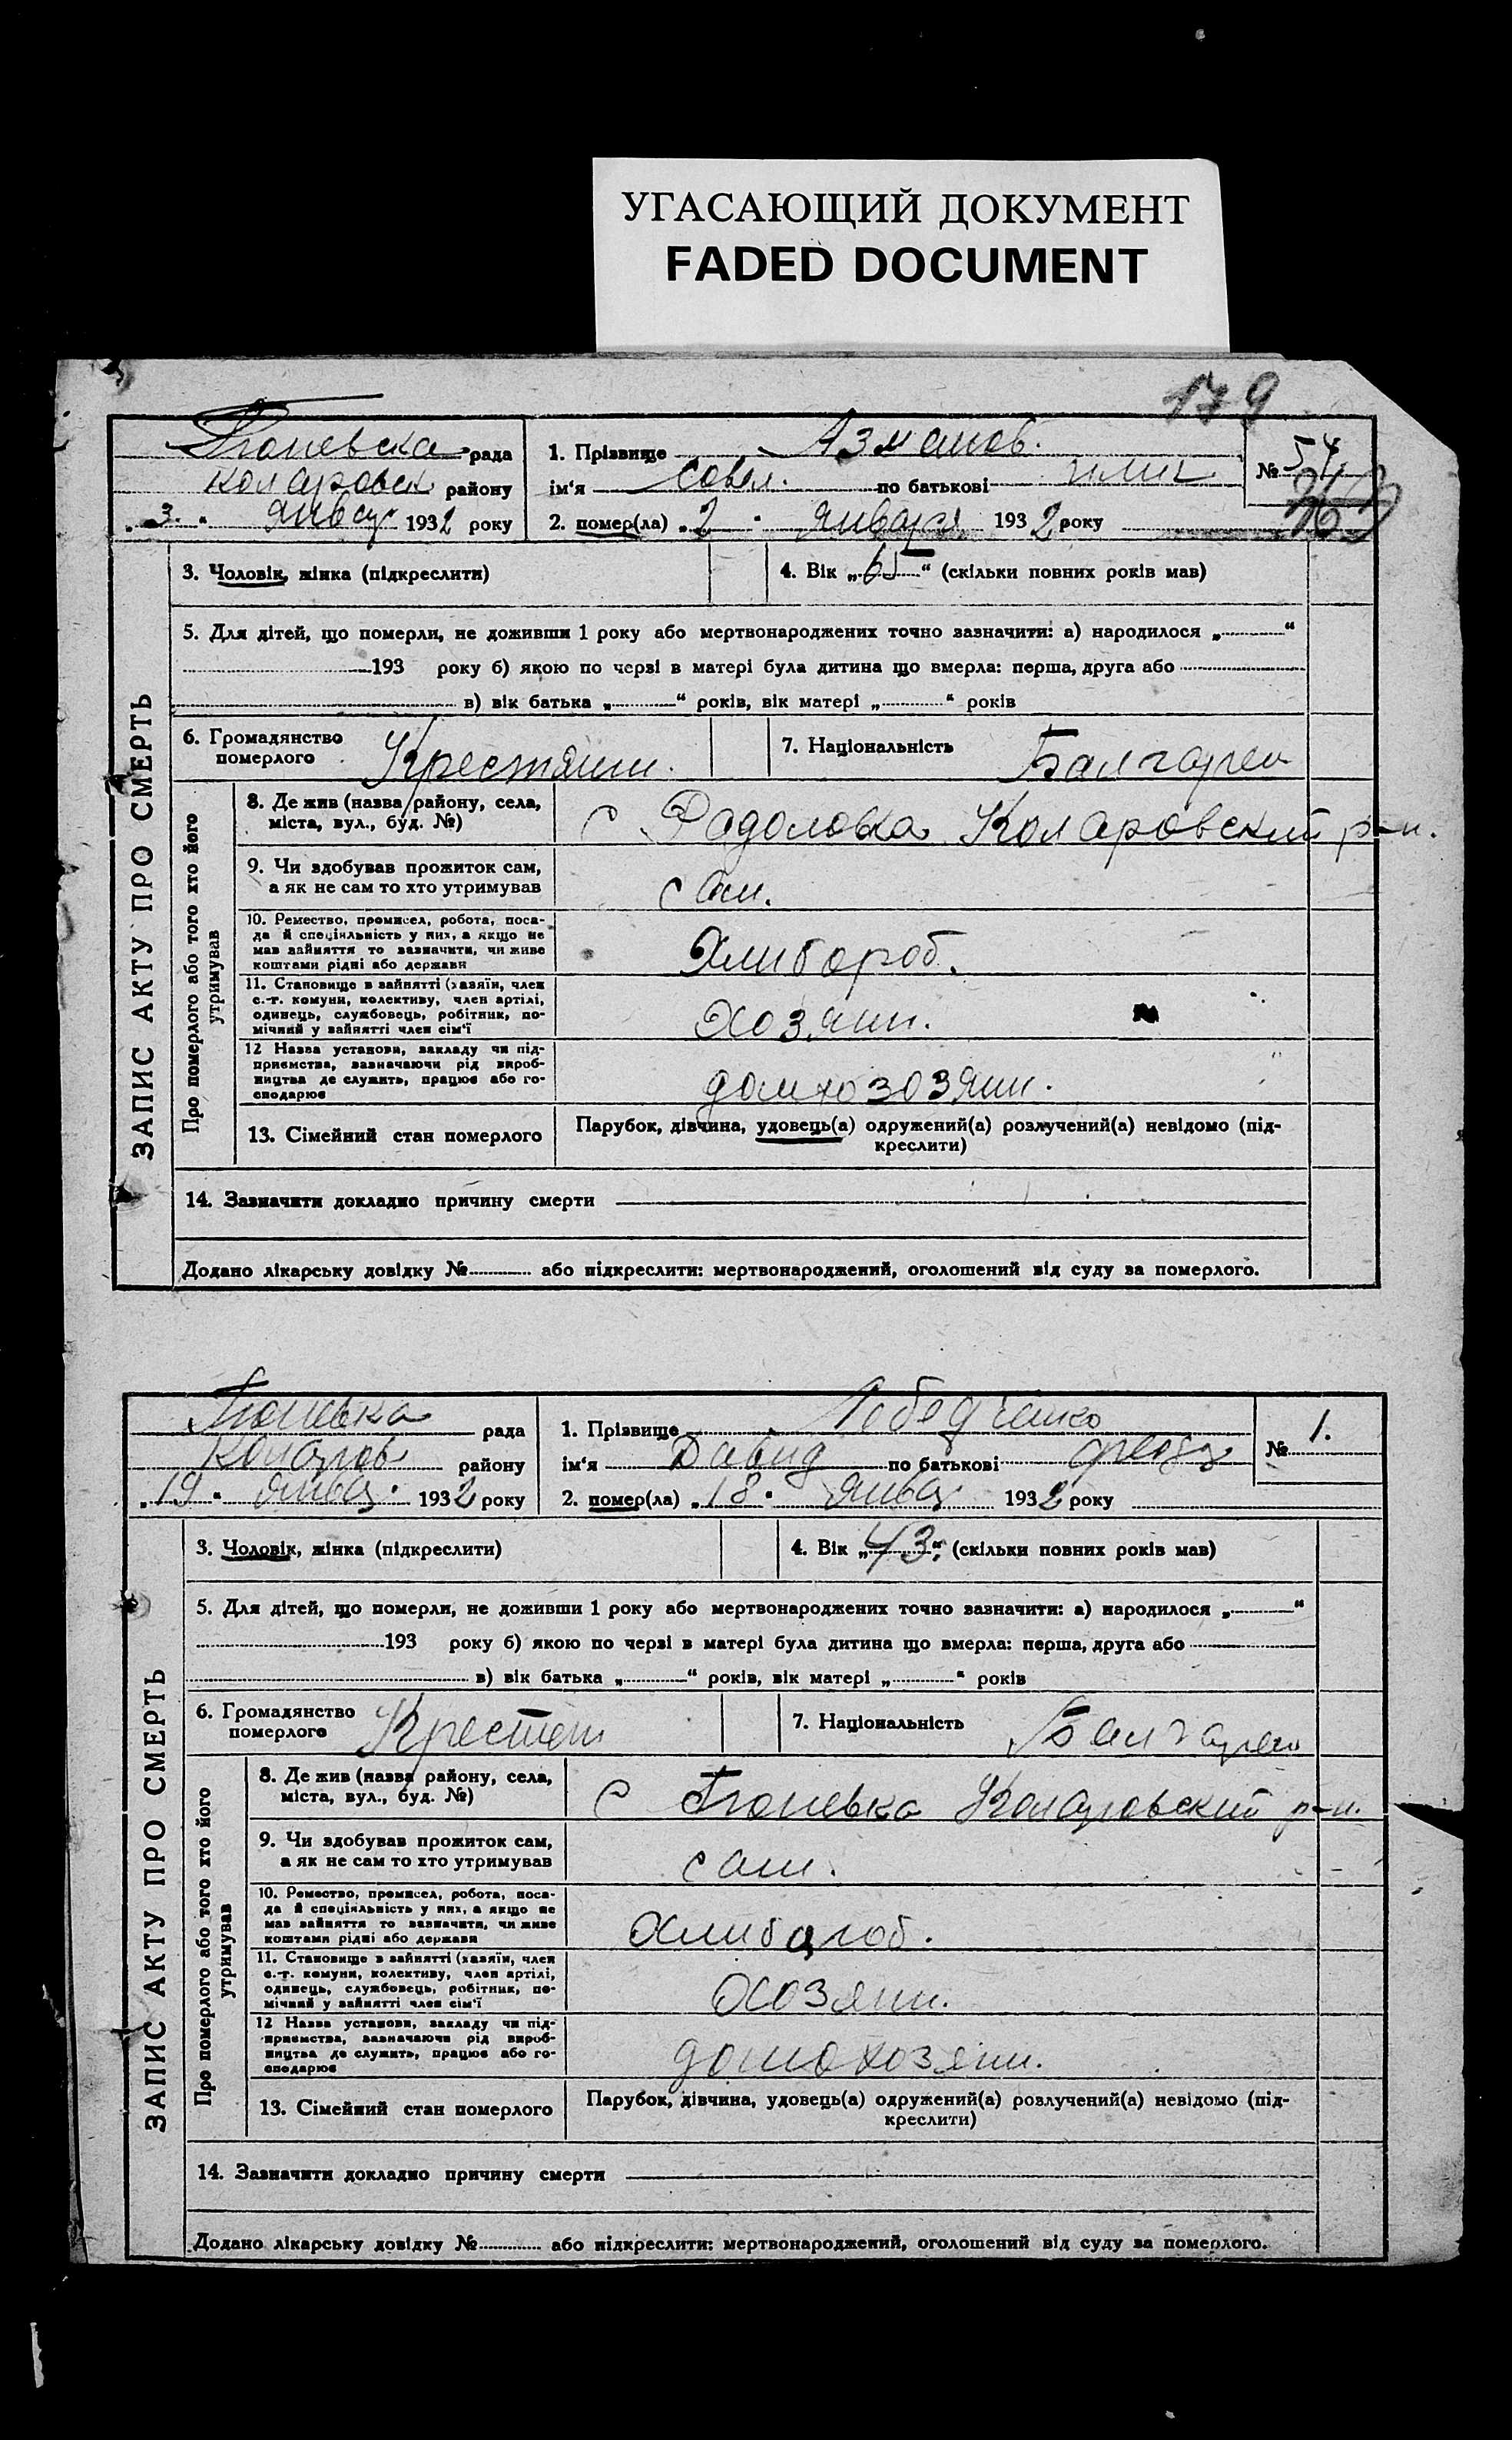 УГАСАЮЩИЙ ДОКУМЕНТ
FADED DOCUMENT
179
рада
1. Прізвище Азманов.
№ 54
Коларовск району
ім'я Савел. по батькові
„3.“ январ 1932 року
2. помер(ла) „2“ января 1932 року
ЗАПИС АКТУ ПРО СМЕРТЬ
3. Чоловік, жінка (підкреслити)
4. Вік „65“ (скільки повних років мав)
5. Для дітей, що померли, не доживши 1 року або мертвонароджених точно зазначити: а) народилося „ “
193 року б) якою по черзі в матері була дитина що вмерла: перша, друга або
в) вік батька „ “ років, вік матері „ “ років
6. Громадянство померлого Крестянин.
7. Національність Балгарен
Про померлого або того хто його утримував
8. Де жив (назва району, села,
міста, вул., буд. №)
с Радоловка Коларовский р-н.
9. Чи здобував прожиток сам,
а як не сам то хто утримував
сам.
10. Ремество, промисел, робота, поса-
да й спеціяльність у них, а якщо не
мав зайняття то зазначити, чи живе
коштами рідні або держави
Хлибороб.
11. Становище в зайнятті (хазяїн, член
с.-г. комуни, колективу, член артілі,
одинець, службовець, робітник, по-
мічний у зайнятті член сім'ї
Хозяин.
12 Назва установи, закладу чи під-
приємства, зазначаючи рід вироб-
ництва де служить, працює або го-
сподарює
домхозозяин.
13. Сімейний стан померлого
Парубок, дівчина, удовець(а) одружений(а) розлучений(а) невідомо (під-
креслити)
14. Зазначити докладно причину смерти
Додано лікарську довідку № або підкреслити: мертвонароджений, оголошений від суду за померлого.
Тюневка рада
1. Прізвище
№ 1.
Коларов району
ім'я Давид по батькові
„19“ январ. 1932 року
2. помер(ла) „18“ январ 1932 року
ЗАПИС АКТУ ПРО СМЕРТЬ
3. Чоловік, жінка (підкреслити)
4. Вік „43“ (скільки повних років мав)
5. Для дітей, що померли, не доживши 1 року або мертвонароджених точно зазначити: а) народилося „ “
193 року б) якою по черзі в матері була дитина що вмерла: перша, друга або
в) вік батька „ “ років, вік матері „ “ років
6. Громадянство померлого Крестян
7. Національність Балгарен
Про померлого або того хто його утримував
8. Де жив (назва району, села,
міста, вул., буд. №)
с Тюневка Коларовский р-н.
9. Чи здобував прожиток сам,
а як не сам то хто утримував
сам.
10. Ремество, промисел, робота, поса-
да й спеціяльність у них, а якщо не
мав зайняття то зазначити, чи живе
коштами рідні або держави
Хлибароб.
11. Становище в зайнятті (хазяїн, член
с.-г. комуни, колективу, член артілі,
одинець, службовець, робітник, по-
мічний у зайнятті член сім'ї
Хозяин.
12 Назва установи, закладу чи під-
приємства, зазначаючи рід вироб-
ництва де служить, працює або го-
сподарює
домохозяин.
13. Сімейний стан померлого
Парубок, дівчина, удовець(а) одружений(а) розлучений(а) невідомо (під-
креслити)
14. Зазначити докладно причину смерти
Додано лікарську довідку № або підкреслити: мертвонароджений, оголошений від суду за померлого.